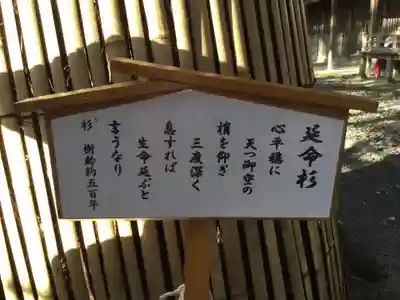 延命杉
心平穏に
天つ御空の
梢を仰ぎ
三度深く
息すれば
生命延ぶと
言うなり
杉 樹齢約五百年